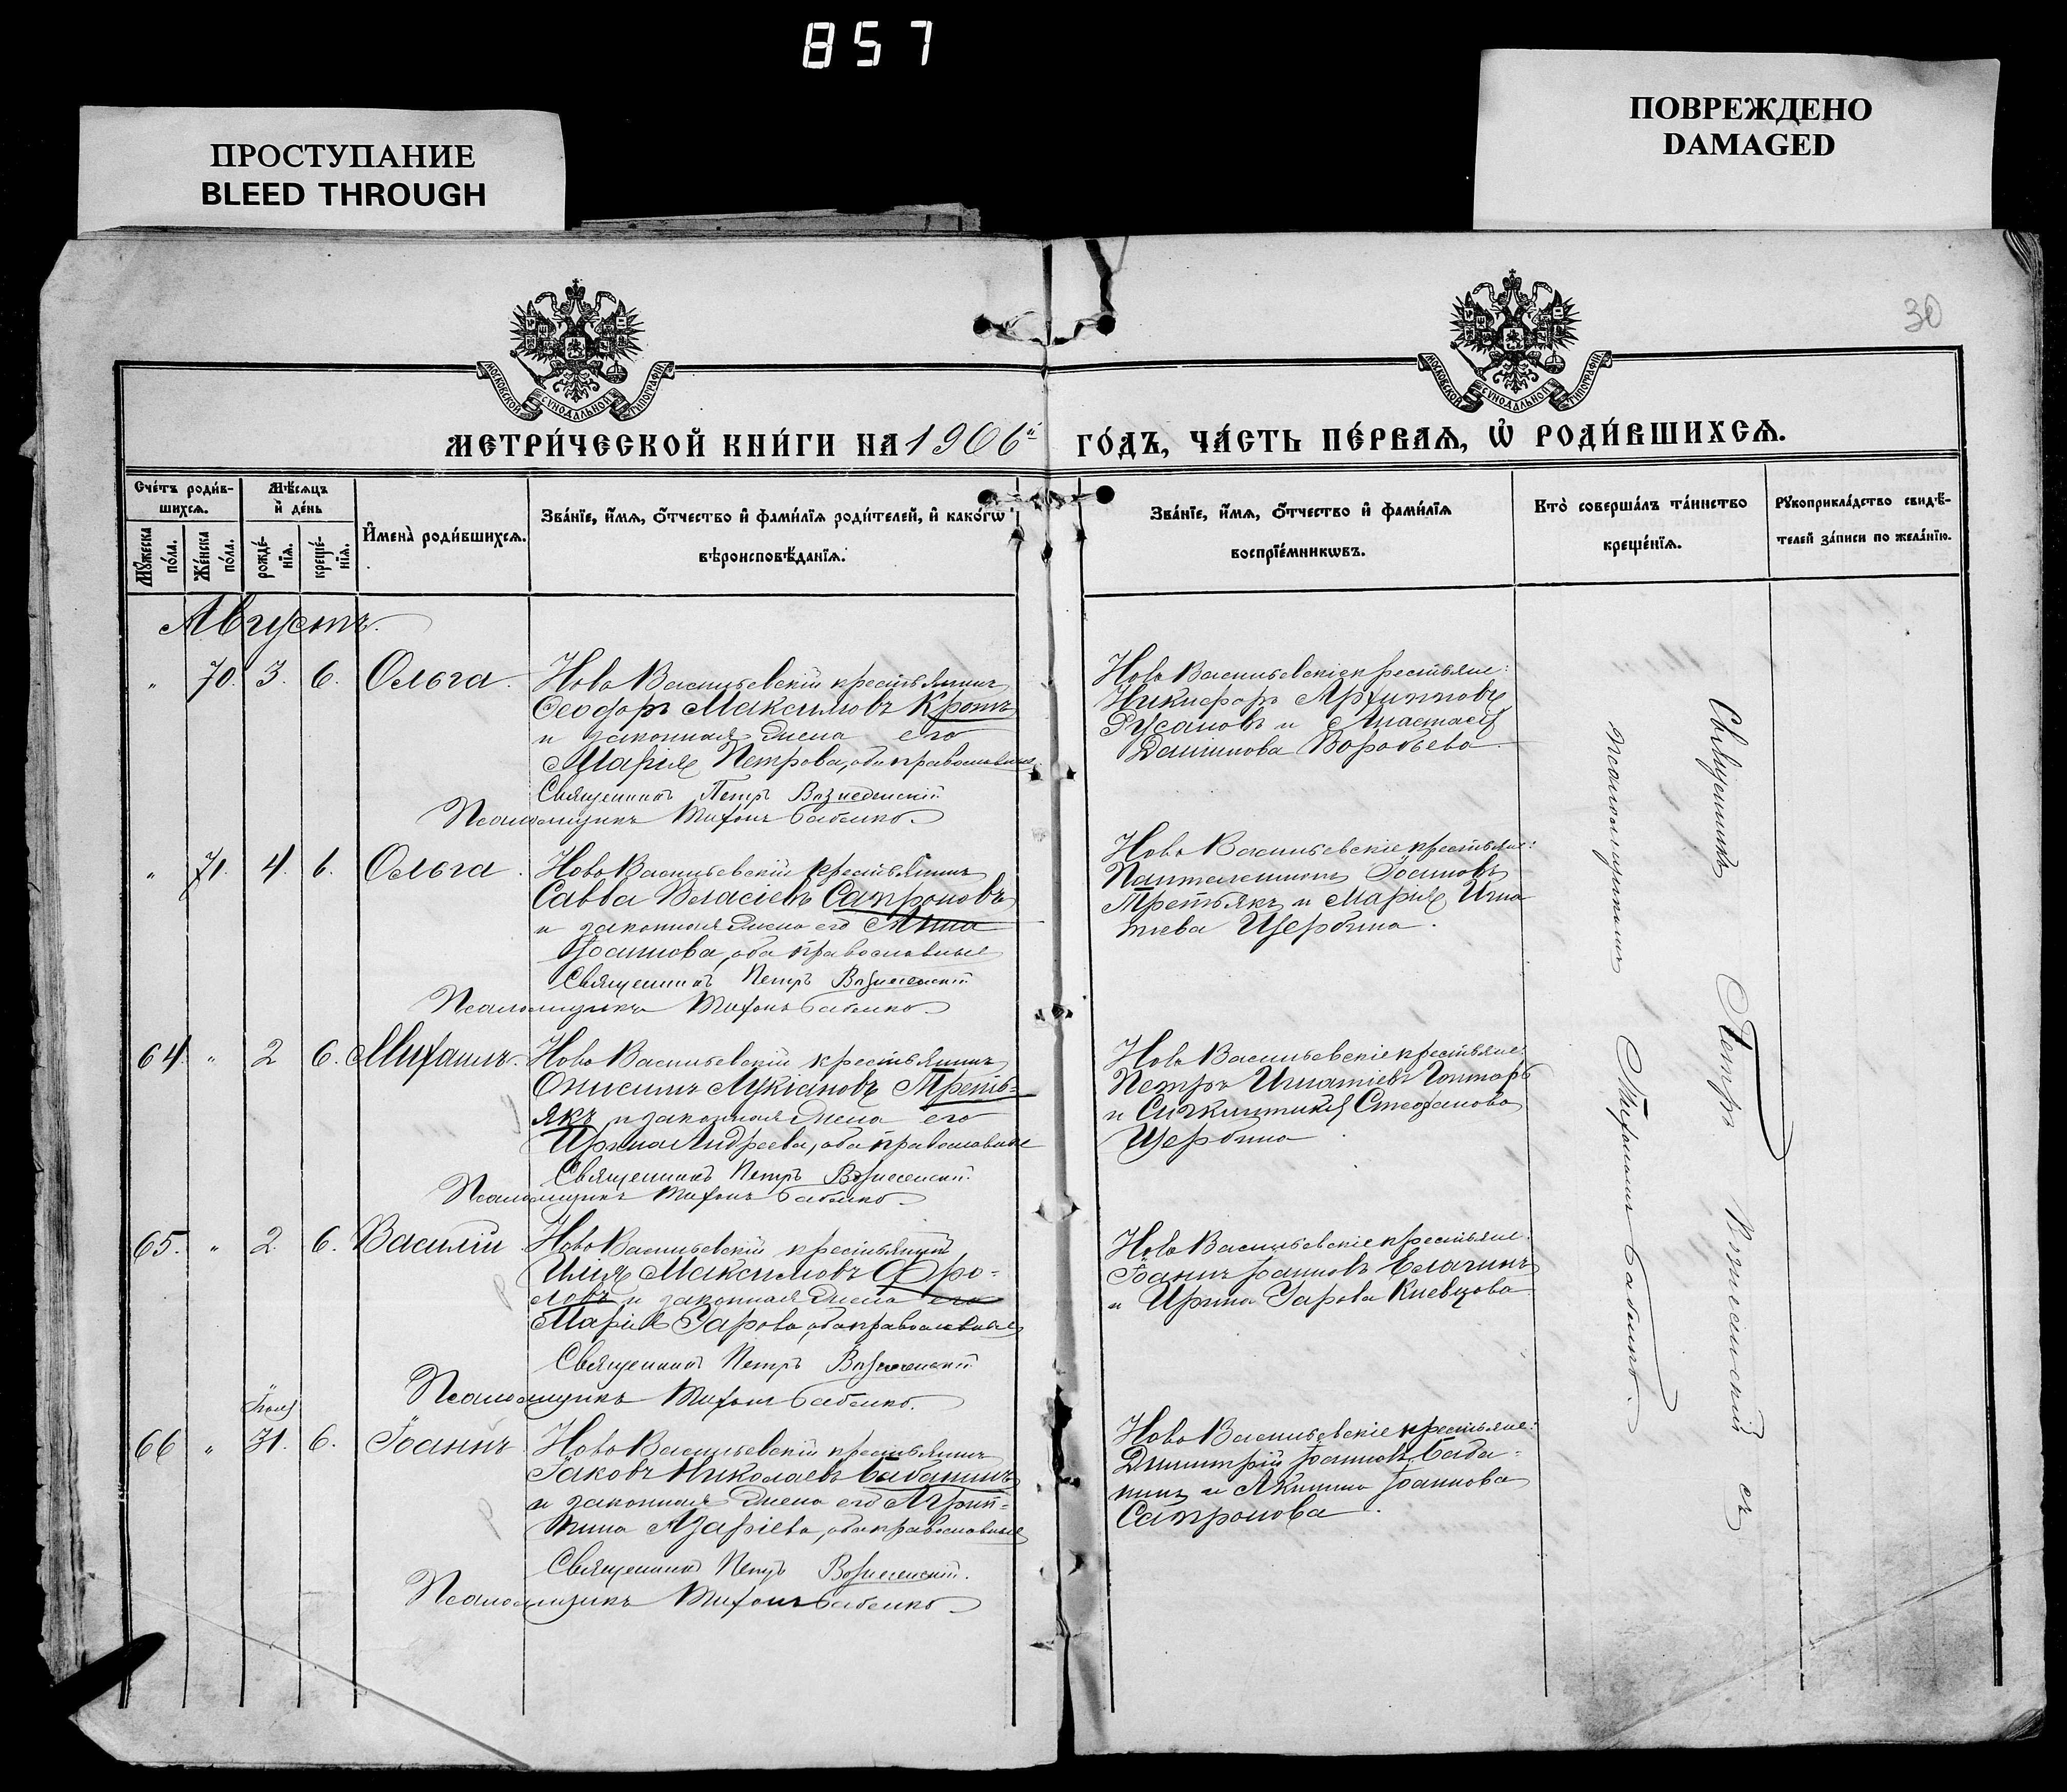 857
ПРОСТУПАНИЕ
BLEED THROUGH
ПОВРЕЖДЕНО
DAMAGED
30
МОСКОВСКОЙ СѴНОДАЛЬНОЙ ТИПОГРАФІИ
МОСКОВСКОЙ СѴНОДАЛЬНОЙ ТИПОГРАФІИ
МЕТРИ́ЧЕСКОЙ КНИ́ГИ НА 1906й ГО́ДЪ, ЧА́СТЬ ПЕ́РВАѦ, Ѡ҆ РОДИ́ВШИХСѦ.
Сче́тъ роди́в-
шихсѧ.
Мꙋ́жеска по́ла.
Же́нска по́ла.
Мѣ́сѧцъ и҆ де́нь
рожде́-
нїѧ.
креще́-
нїѧ.
И҆мена̀ роди́вшихсѧ.
Зва́нїе, и҆́мѧ, ѻ҆́тчество и҆ фами́лїѧ роди́телей, и҆ како́гѡ
вѣроисповѣ́данїѧ.
Зва́нїе, и҆́мѧ, ѻ҆́тчество и҆ фами́лїѧ
воспрїе́мникѡвъ.
Кто̀ соверша́лъ та́инство
креще́нїѧ.
Рꙋкоприкла́дство свидѣ́-
телей за́писи по жела́нїю.
Августъ.
" 70. 3. 6. Ольга.
Ново Васильевскій крестьянинъ
Ѳеодоръ Максимовъ Кротъ
и законная жена его
Марія Петрова, оба православные
Священникъ Петръ Вознесенскій
Псаломщикъ Тихонъ Бабенко.
Ново Васильевскіе крестьяне:
Никифоръ Архиповъ
Русановъ и Анастасія
Даніилова Воробьева.
" 71. 4. 6. Ольга.
Ново Васильевскій крестьянинъ
Савва Власіевъ Сапроновъ
и законная жена его Анна
Іоаннова, оба православные
Священникъ Петръ Вознесенскій
Псаломщикъ Тихонъ Бабенко.
Ново Васильевскіе крестьяне:
Пантелеимонъ Іоанновъ
Третьякъ и Марія Игна
тіева Щербина.
64. " 2 6. Михаилъ.
Ново Васильевскій крестьянинъ
Онисимъ Лукіановъ Треть-
якъ и законная жена его
Ирина Андреева, оба православные
Священникъ Петръ Вознесенскій
Псаломщикъ Тихонъ Бабенко.
Ново Васильевскіе крестьяне:
Петръ Игнатіевъ
и Стефанова
Щербина
65. " 2. 6. Василій
Ново Васильевскій крестьянинъ
Илія Максимовъ Фро-
ловъ и законная жена его
Марія Уарова, оба православные
Священникъ Петръ Вознесенскій
Псаломщикъ Тихонъ Бабенко.
Ново Васильевскіе крестьяне.
Іоаннъ Іоанновъ Елагинъ
и Ирина Уарова Киевцова
Іюля
66 " 31. 6. Іоаннъ
Ново Васильевскій крестьянинъ
Іаковъ Николаевъ Бабанинъ
и законная жена его Агрип-
пина Азаріева, оба православные
Священникъ Петръ Вознесенскій.
Псаломщикъ Тихонъ Бабенко
Ново Васильевскіе крестьяне:
Димитрій Іоанновъ Баба-
нинъ и Акилина Іоаннова
Сапронова.
Священникъ Петръ Вознесенскій съ
псаломщикомъ Тихономъ Бабенко.